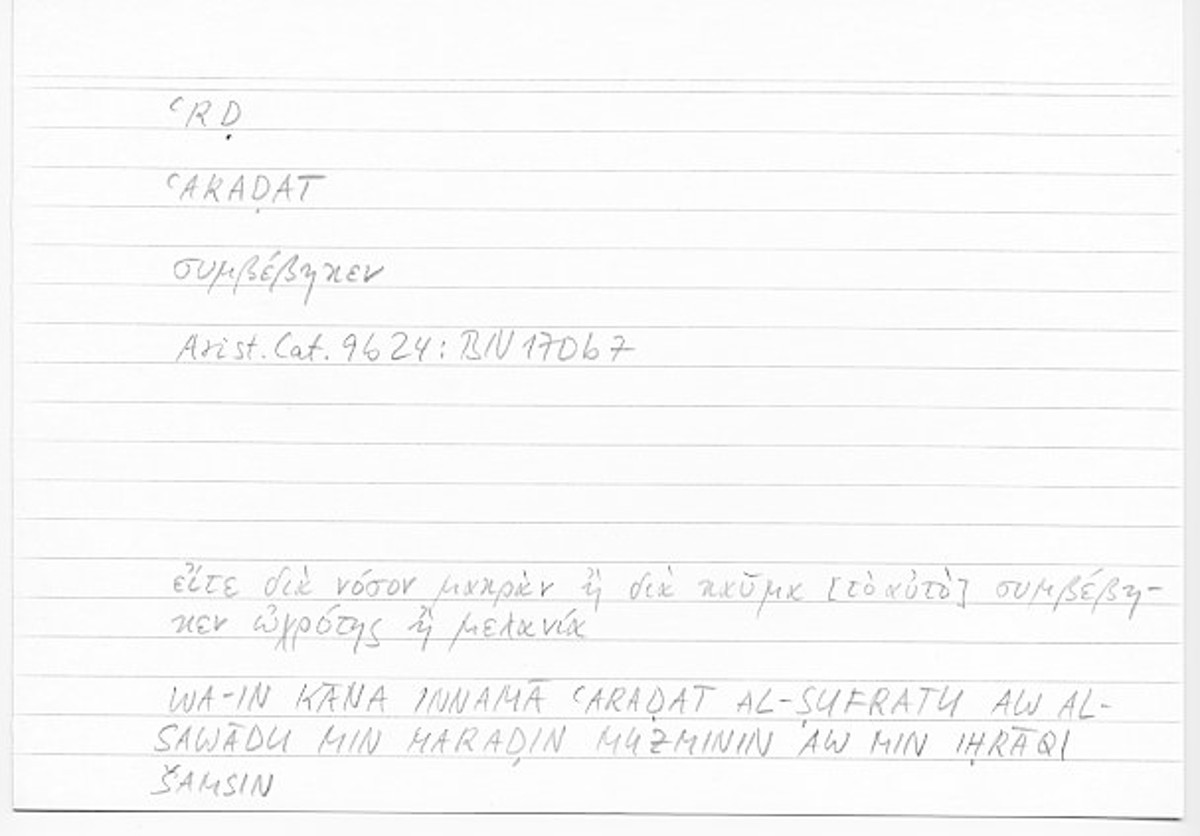 ʿRḌ
ʿARAḌAT
συμβέβηκεν
Arist. Cat. 9b24: BN 170b7
εἴτε διὰ νόσον μακρὰν ἢ διὰ καῦμα [τὸ αὐτὸ] συμβέβη-
κεν ὠχρότης ἢ μελανία
WA-IN KĀNA INNAMĀ ʿARAḌAT AL-ṢUFRATU AW AL-
SAWĀDU MIN MARAḌIN MUZMININ AW MIN IḤRĀQI
ŠAMSIN